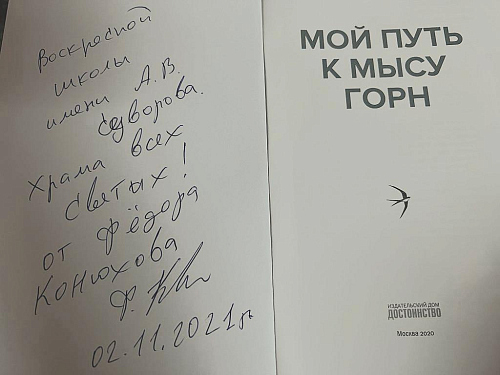 Воскресной
школы
имени А.В.
Суворова.
храма всех
святых!
от Фёдора
Конюхова
02.11.2021г.
МОЙ ПУТЬ
К МЫСУ
ГОРН
ИЗДАТЕЛЬСКИЙ ДОМ
ДОСТОИНСТВО
Москва 2020